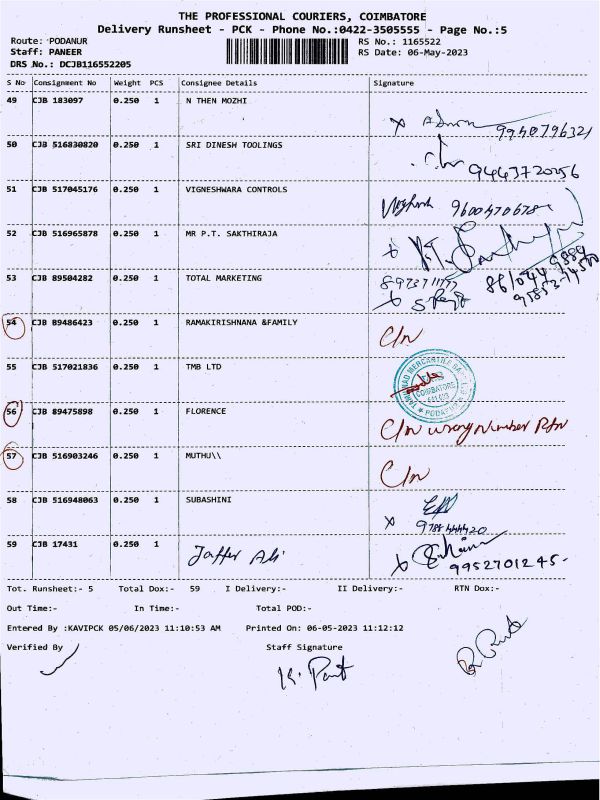 THE PROFESSIONAL COURIERS, COIMBATORE
Delivery Runsheet - PCK - Phone No.:0422-3505555 - Page No.:5
Route: PODANUR RS No.: 1165522
Staff: PANEER RS Date: 06-May-2023
DRS No.: DCJB116552205
S No Consignment No Weight PCS Consignee Details Signature
49 CJB 183097 0.250 1 N THEN MOZHI
9940796321
50 CJB 516830820 0.250 1 SRI DINESH TOOLINGS
9443720256
51 CJB 517045176 0.250 1 VIGNESHWARA CONTROLS
9600470678
52 CJB 516965878 0.250 1 MR P.T. SAKTHIRAJA
53 CJB 89504282 0.250 1 TOTAL MARKETING
54 CJB 89486423 0.250 1 RAMAKIRISHNANA &FAMILY
C/n
55 CJB 517021836 0.250 1 TMB LTD
COIMBATORE
56 CJB 89475898 0.250 1 FLORENCE
C/n wrong number Rtn
57 CJB 516903246 0.250 1 MUTHU\\
C/n
58 CJB 516948063 0.250 1 SUBASHINI
59 CJB 17431 0.250 1 Jaffer Ali
9952701245-
Tot. Runsheet:- 5 Total Dox:- 59 I Delivery:- II Delivery:- RTN Dox:-
Out Time:- In Time:- Total POD:-
Entered By :KAVIPCK 05/06/2023 11:10:53 AM Printed On: 06-05-2023 11:12:12
Verified By Staff Signature